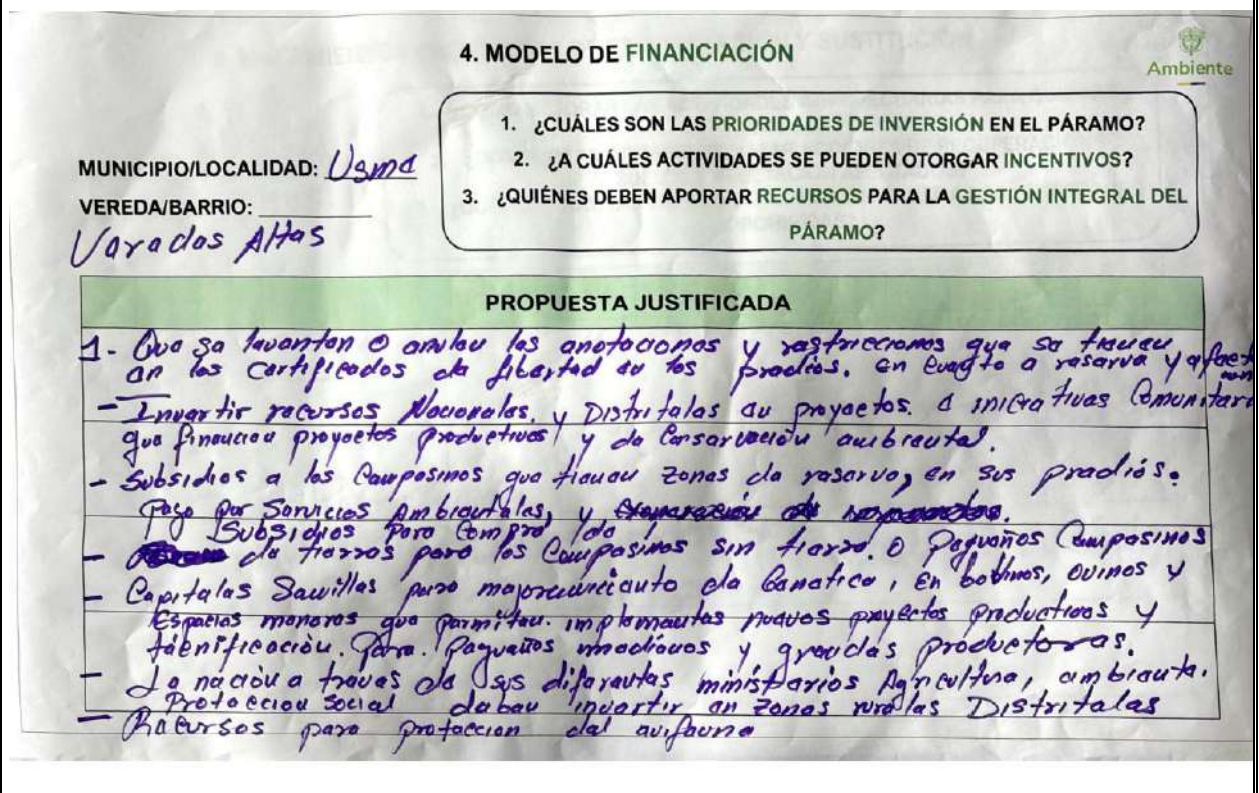 4. MODELO DE FINANCIACIÓN
Ambiente
1. ¿CUÁLES SON LAS PRIORIDADES DE INVERSIÓN EN EL PÁRAMO?
2. ¿A CUÁLES ACTIVIDADES SE PUEDEN OTORGAR INCENTIVOS?
3. ¿QUIÉNES DEBEN APORTAR RECURSOS PARA LA GESTIÓN INTEGRAL DEL
PÁRAMO?
MUNICIPIO/LOCALIDAD: Usme
VEREDA/BARRIO:
Varados Altas
PROPUESTA JUSTIFICADA
1- Que se levanten o anulen las anotaciones y restricciones que se tienen
en los certificados de libertad en los predios. en cuanto a reserva y
- Invertir recursos Nacionales. y Distritales en proyectos. a iniciativas
que financien proyectos productivos y de Conservación ambiental.
- Subsidios a los Campesinos que tienen zonas de reserva, en sus predios.
Pago por Servicios Ambientales, y
Subsidios para compra de
- de tierras para los Campesinos sin tierra. o Pequeños Campesinos
- Capitales Semillas para mejoramiento de Genetico, en bobinos, ovinos y
Especies menores que permitan. implementar nuevos proyectos productivos y
Para. Pequeños medianos y grandes productores.
- La nación a traves de sus diferentes ministerios Agricultura, ambiente.
Proteccion Social deben invertir en zonas rurales Distritales
- Recursos para proteccion del avifauna